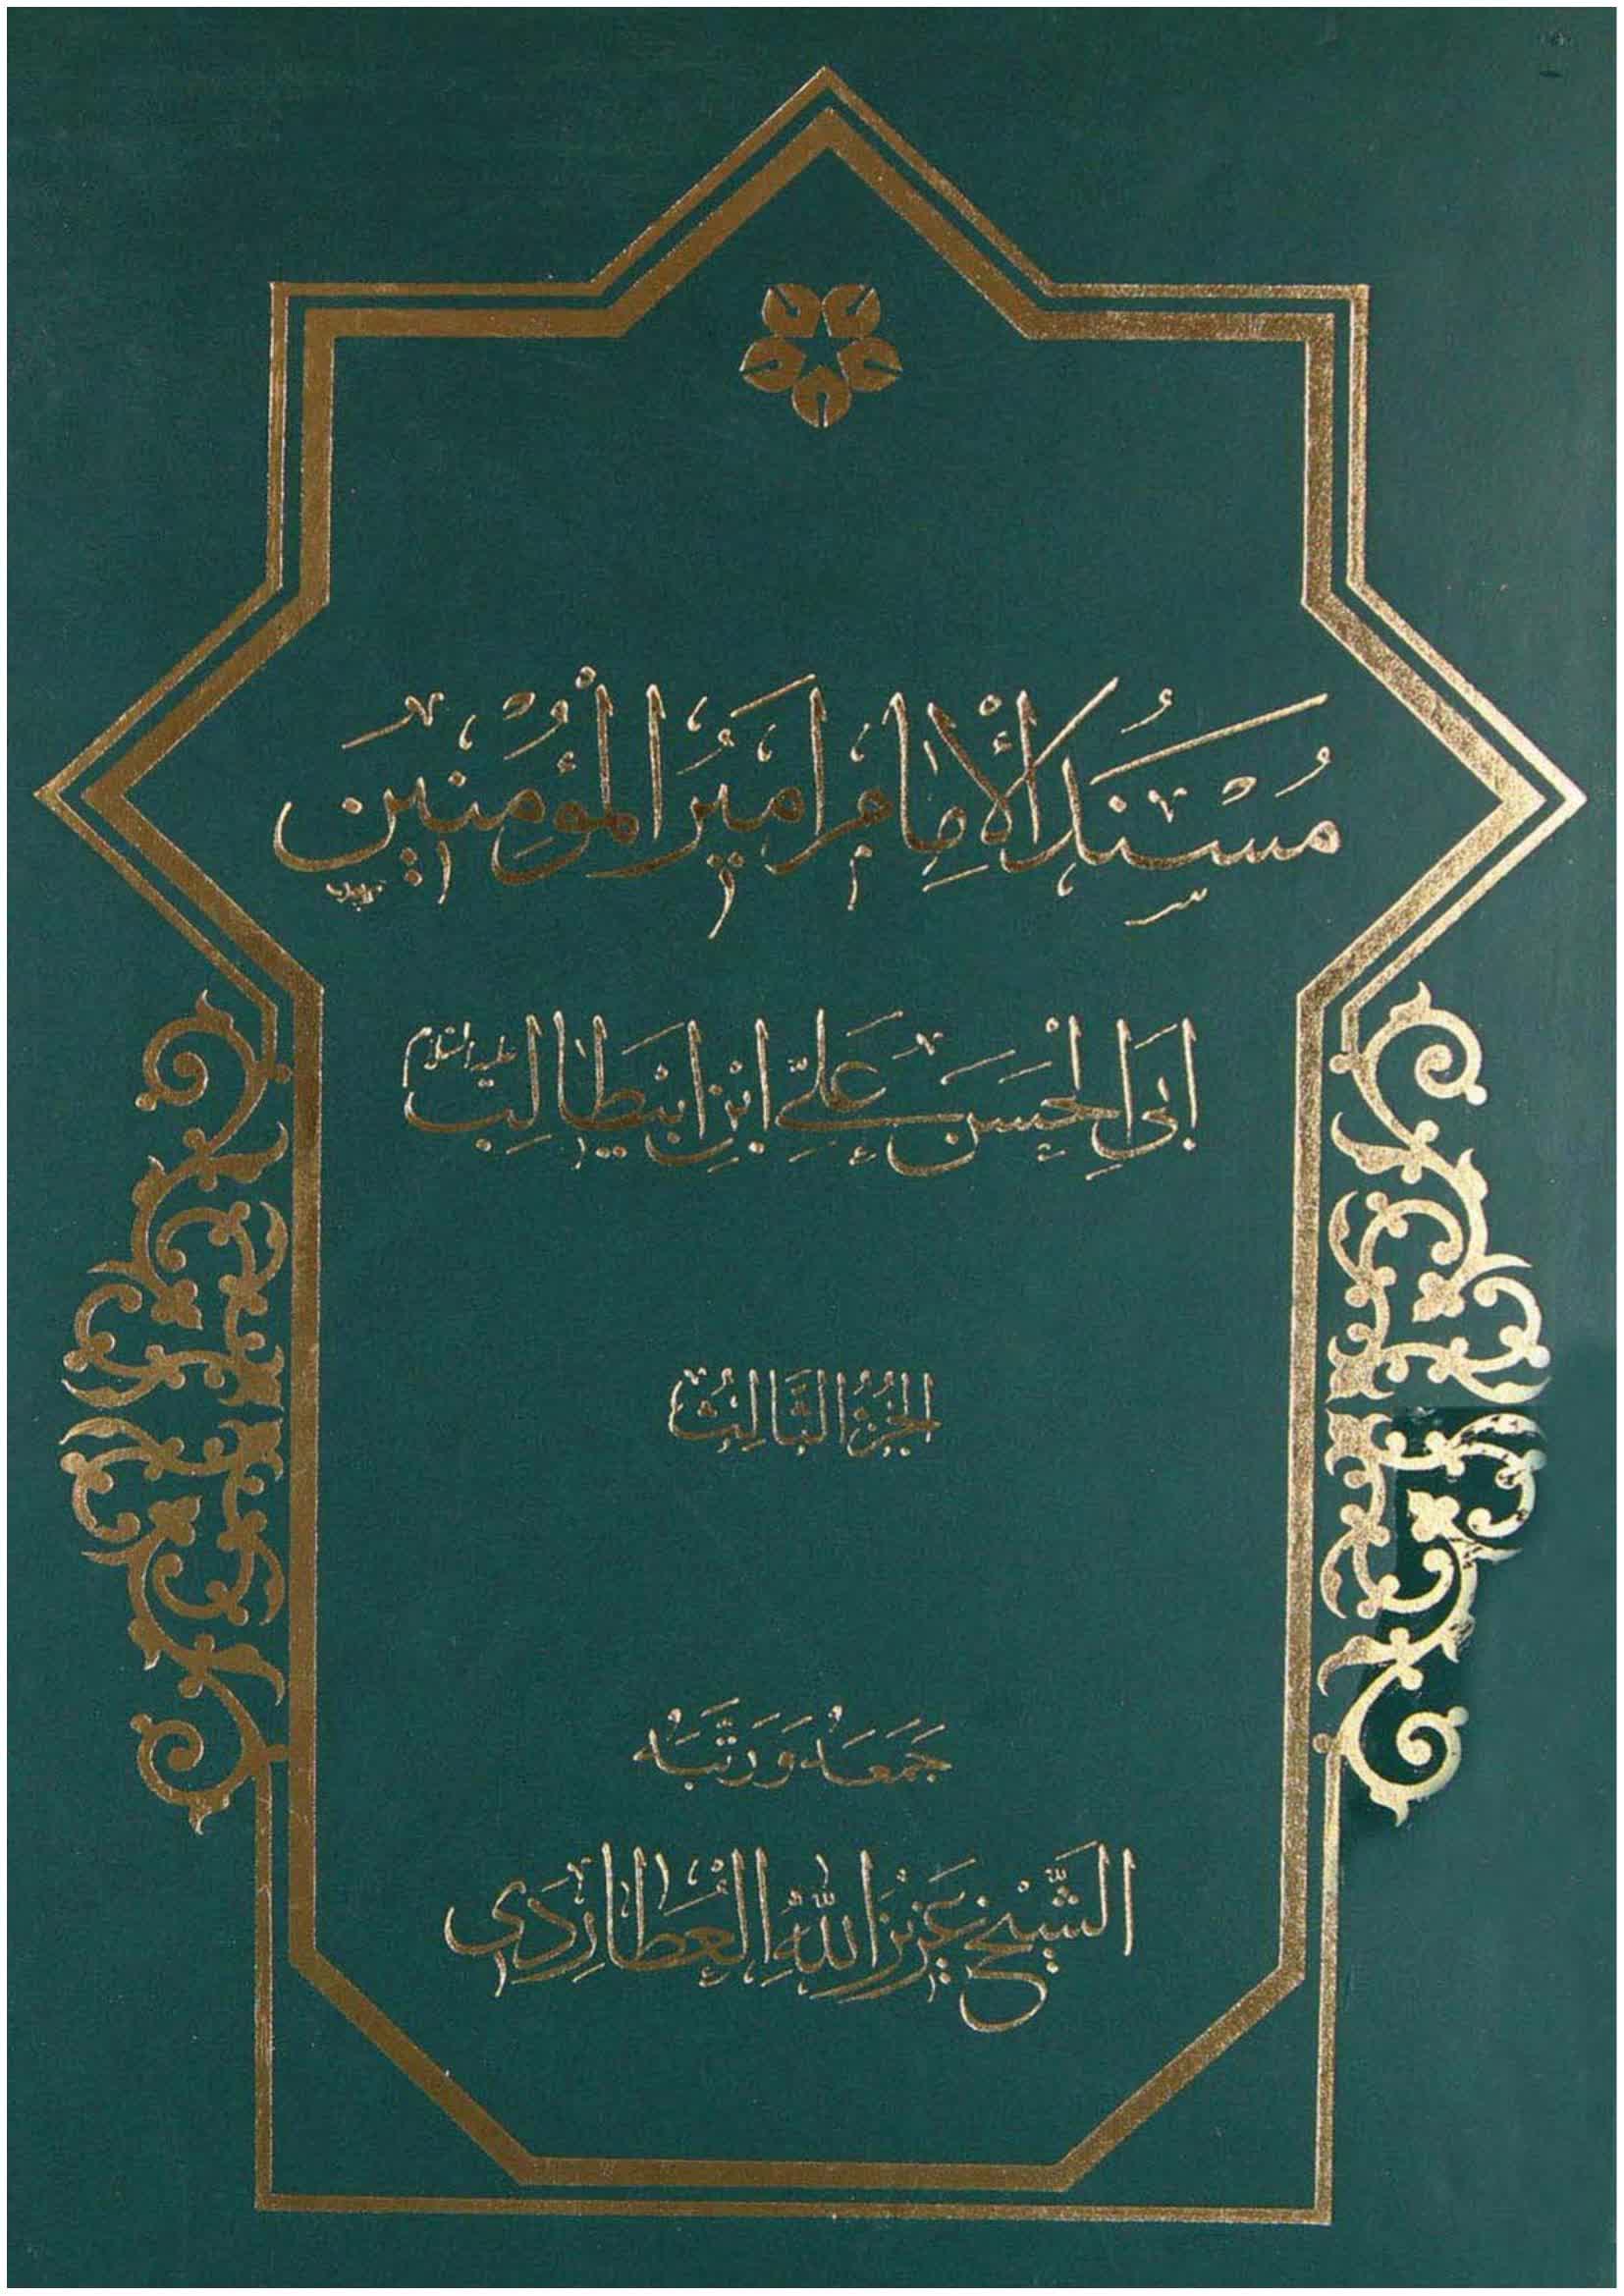 مُسْنَدُ الْإِمَامِ أَمِيرِ الْمُؤْمِنِينَ
أَبِي الْحَسَنِ عَلِيِّ ابْنِ أَبِيطَالِبٍ عليه السلام
الجُزْءُ الثَّالِثُ
جَمَعَهُ وَرَتَّبَهُ
الشَّيْخُ عَزِيزُ اللهِ الْعُطَارِدِي